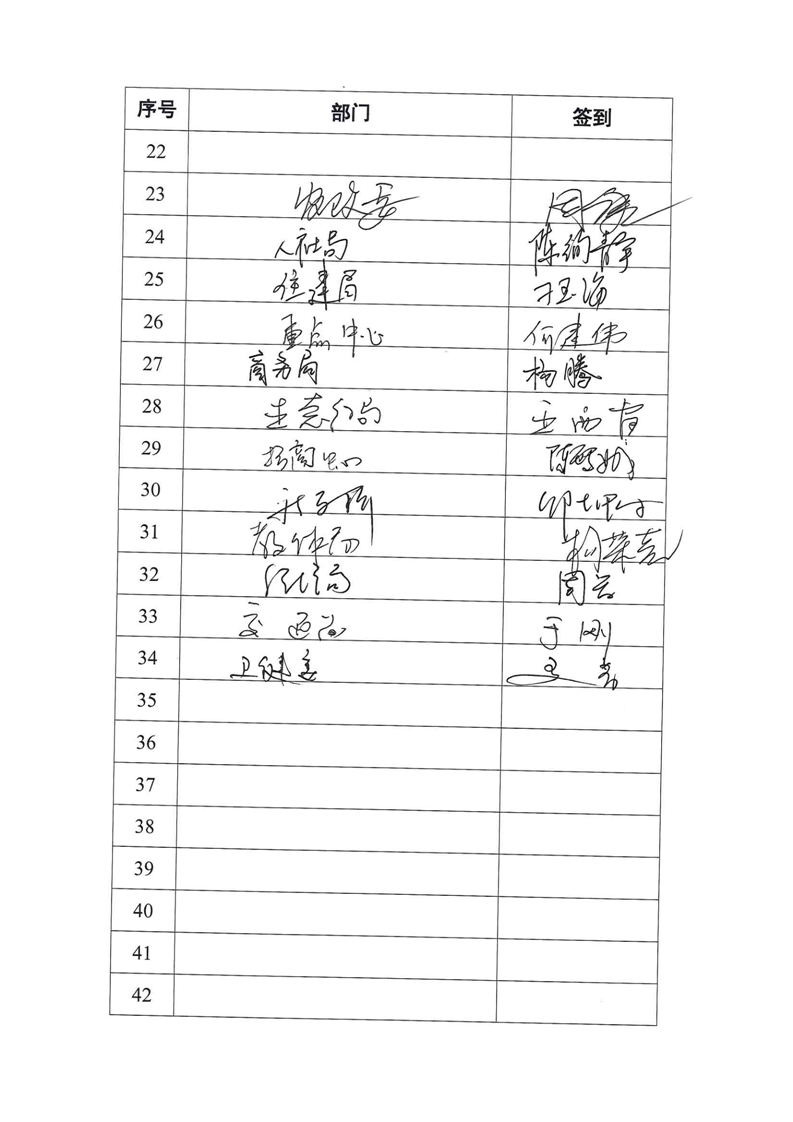 序号 部门 签到
22
23 发改委 周
24 人社局 陈绚静
25 住建局 汪海
26 重点中心 何建伟
27 商务局 杨腾
28 生态分局
29 招商中心 陈
30
31 教体局 杨荣亮
32 经信局 周云
33 交通局 于刚
34 卫健委 王勇
35
36
37
38
39
40
41
42